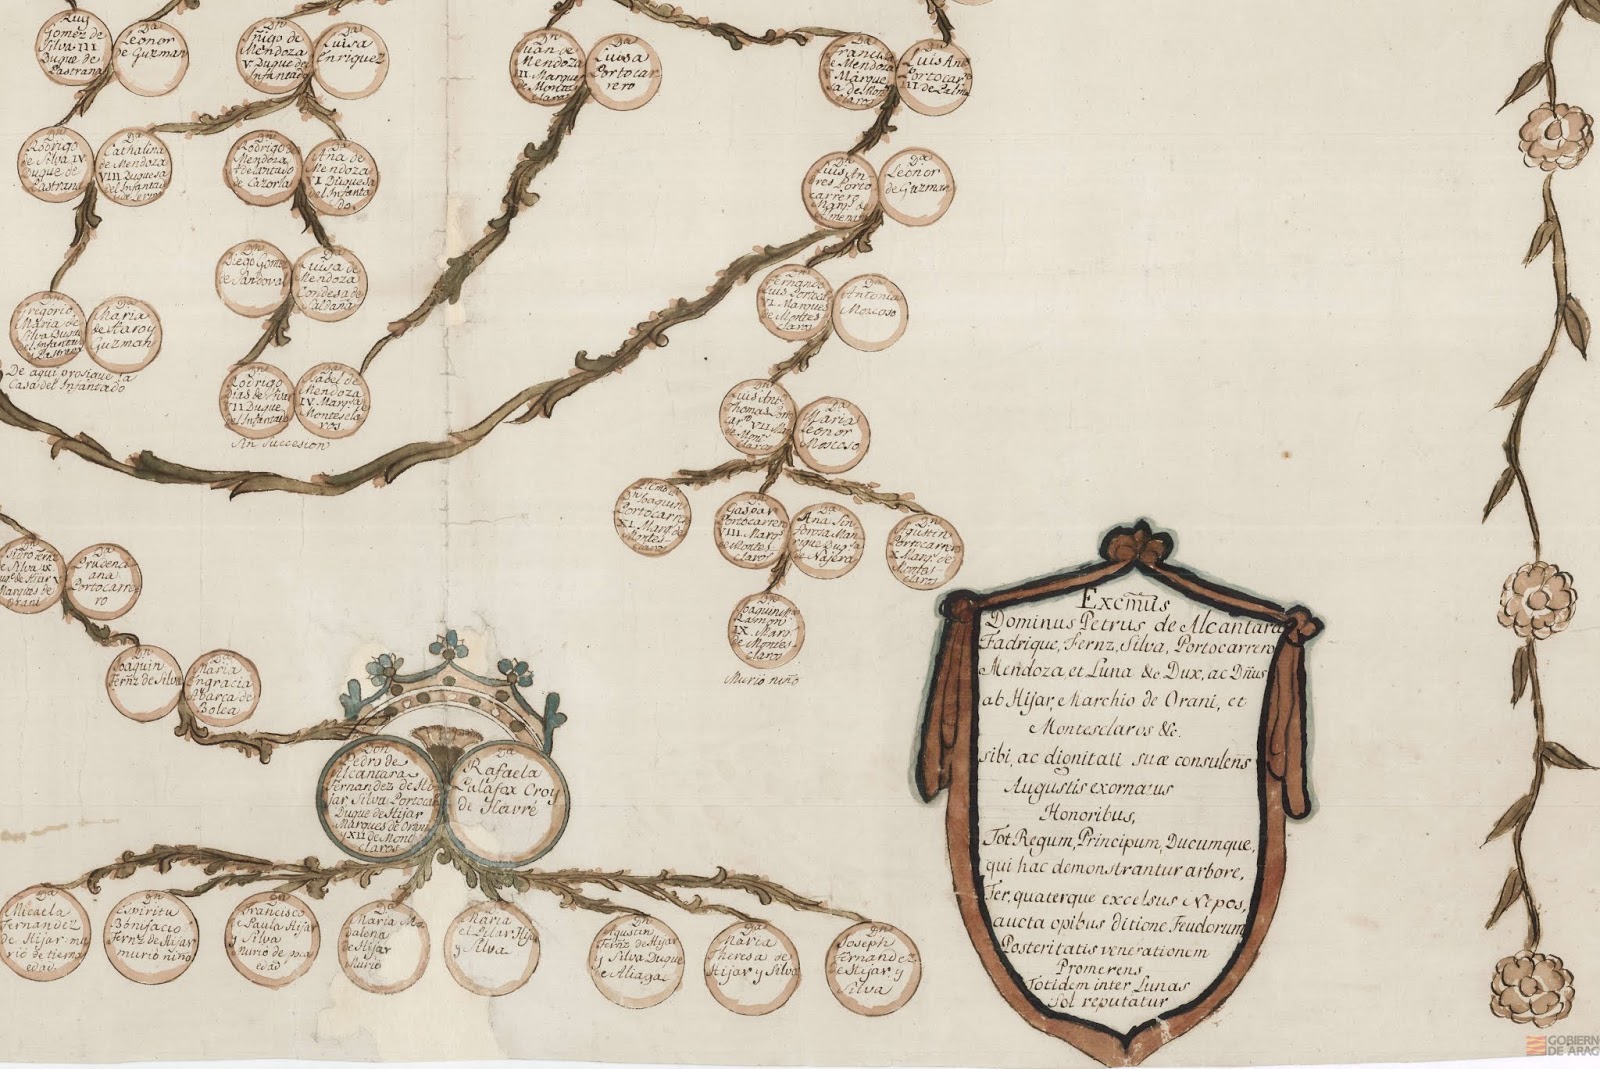 Ruy
Gomez de
Silva III
Duque de
Pastrana
Dª
Leonor
de Guzman
Dn
Iñigo de
Mendoza
V Duque del
Infantado
Dª
Luisa
Enriquez
Dn
Juan de
Mendoza
II. Marques
de Montes
claros
Dª
Luisa
Portocar
rero
Dª
Francisca
de Mendoza
Marque
sa de Mont
claros
Luis Antº
Portocarº
III de Palma
Dn
Rodrigo
de Silva IV
Duque de
Pastrana
Dª
Cathalina
de Mendoza
VIII Duquesa
del Infantad
y de Lerma
Dn
Rodrigo de
Mendoza
Adelantado
de Cazorla
Dª
Ana de
Mendoza
VI Duquesa
del Infanta
do.
Dn
Luis An-
dres Porto
carrero
Marqs de
Almenara
Dª
Leonor
de Guzman
Dn
Diego Gomez
de Sandoval
Dª
Luisa de
Mendoza
Condesa de
Saldaña
Dn
Fernando
Luis Portocar
VI. Marques
de Montes
claros
Dª
Antonia
Moscoso
Dn
Gregorio
Maria de
Silva Duque
del Infantado
y Pastrana
Dª
Maria
de Haro y
Guzman
De aqui prosigue la
Casa del Infantado
Dn
Rodrigo
Dias de Vivar
VII Duque
del Infantado
Dª
Isabel de
Mendoza
IV. Marqsa de
Montescla
ros
Sin succesion
Dn
Luis Antº
Thomas Porto
carº VII Mar
de Mont
claros
Dª
Maria
Leonor
Moscoso
Dn Joaquin
Portocarrero
XI. Marqs de
Montes-
claros
Dn
Gaspar
Portocarrero
VIII. Marqs
de Montes
claros
Dª
Ana Sin
forosa Man
rique Duqsa
de Najera
Dn
Agustin
Portocarrero
X Marqs de
Montes-
claros
Dn
Joaquin
Ramon
IX. Marqs
de Montes
claros
Murio niño
Silva IX
Duqe de Hijar V
Marques de
Orani
Dª
Prudenci
ana
Portocarre
ro
Dn
Joaquin
Fernz de Silva
Dª
Maria
Engracia
Abarca de
Bolea
Don
Pedro de
Alcantara
Fernandez de Hi
jar Silva Portocar
Duque de Hijar
Marques de Orani
y XII de Mont
claros
Dª
Rafaela
Palafox Croy
de Havré
Dª
Micaela
Fernandez
de Hijar mu
rio de tierna
edad.
Dn
Espiritu
Bonifacio
Fernz de Hijar
murio niño
Dn
Francisco
de Paula Hijar
y Silva
murio de poca
edad
Dª
Maria Ma
dalena
de Hijar
Murio
Dª
Maria
del Pilar Hijar
y Silva
Dn
Agustin
Fernz de Hijar
y Silva Duque
de Aliaga
Dª
Maria
Theresa de
Hijar y Silva
Dn
Joseph
Fernandez
de Hijar y
Silva
Excm̃us
Dominus Petrus de Alcantara
Fadrique, Fernz, Silva, Portocarrero
Mendoza, et Luna &c. Dux, ac Dñus
ab Hijar, Marchio de Orani, et
Montesclaros &c.
sibi, ac dignitati suæ consulens
Augustis exornatus
Honoribus,
Tot Regum, Principum, Ducumque,
qui hac demonstrantur arbore,
Ter, quaterque excelsus Nepos,
aucta opibus ditione Feudorum
Posteritatis venerationem
Promerens
Totidem inter Lunas
Sol reputatur
GOBIERNO
DE ARAG